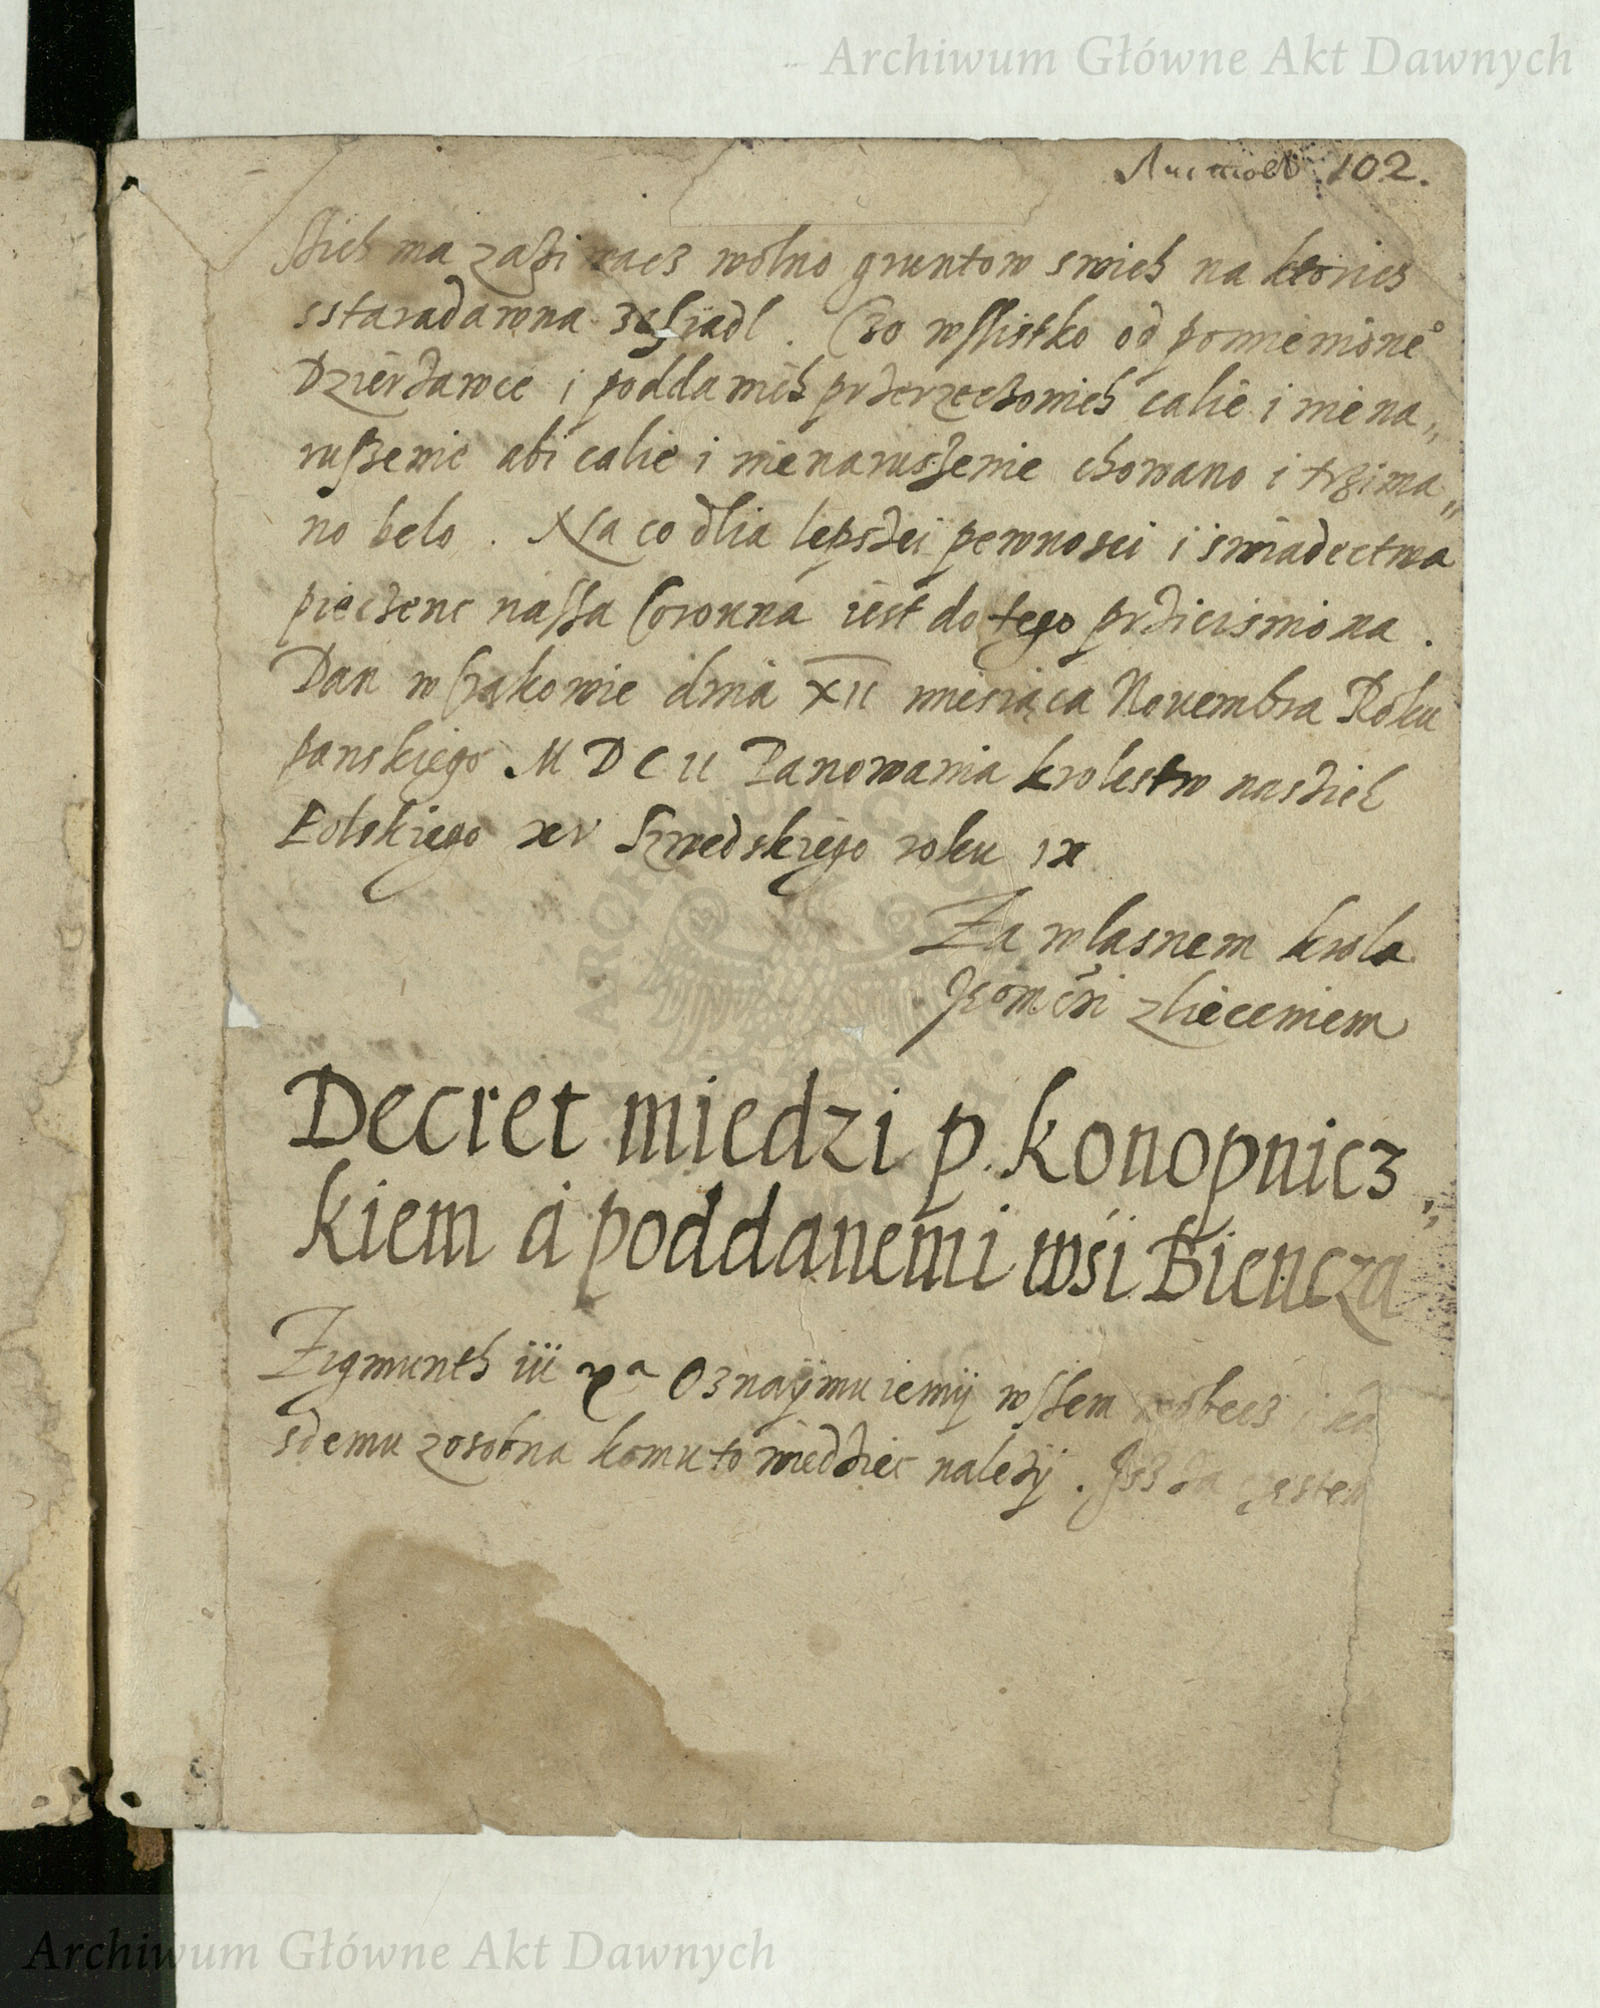 Archiwum Główne Akt Dawnych
Листовъ 102.
ma zaziwacz wolno gruntow swich na ktorich
sstaradawna zasiadl . Czo wssistko od pomienione°
Dzierzawce i poddanich przerzeczonich calie i niena„
russzenie abi calie i nienaruszenie chowano i trzima„
no belo . Na co dlia lepszei pewnosci i swiadectwa
pieczenc nassa Coronna iest do tego przicisniona .
Dan w Crakowie dnia XII miesiąca Nouembra Roku
panskiego MDCII Panowania krolestw naszich
Polskiego xv Szwedskiego roku ix
Za wlasnem krola
zlieceniem
Decret miedzi p. konopnicz„
kiem a poddanemi wśi Biencza
Zigmunth iii Oznaÿmuiemÿ wssem wobecz i ka
zdemu zosobna komu to wiedziec nalezÿ . Isz za
Archiwum Główne Akt Dawnych